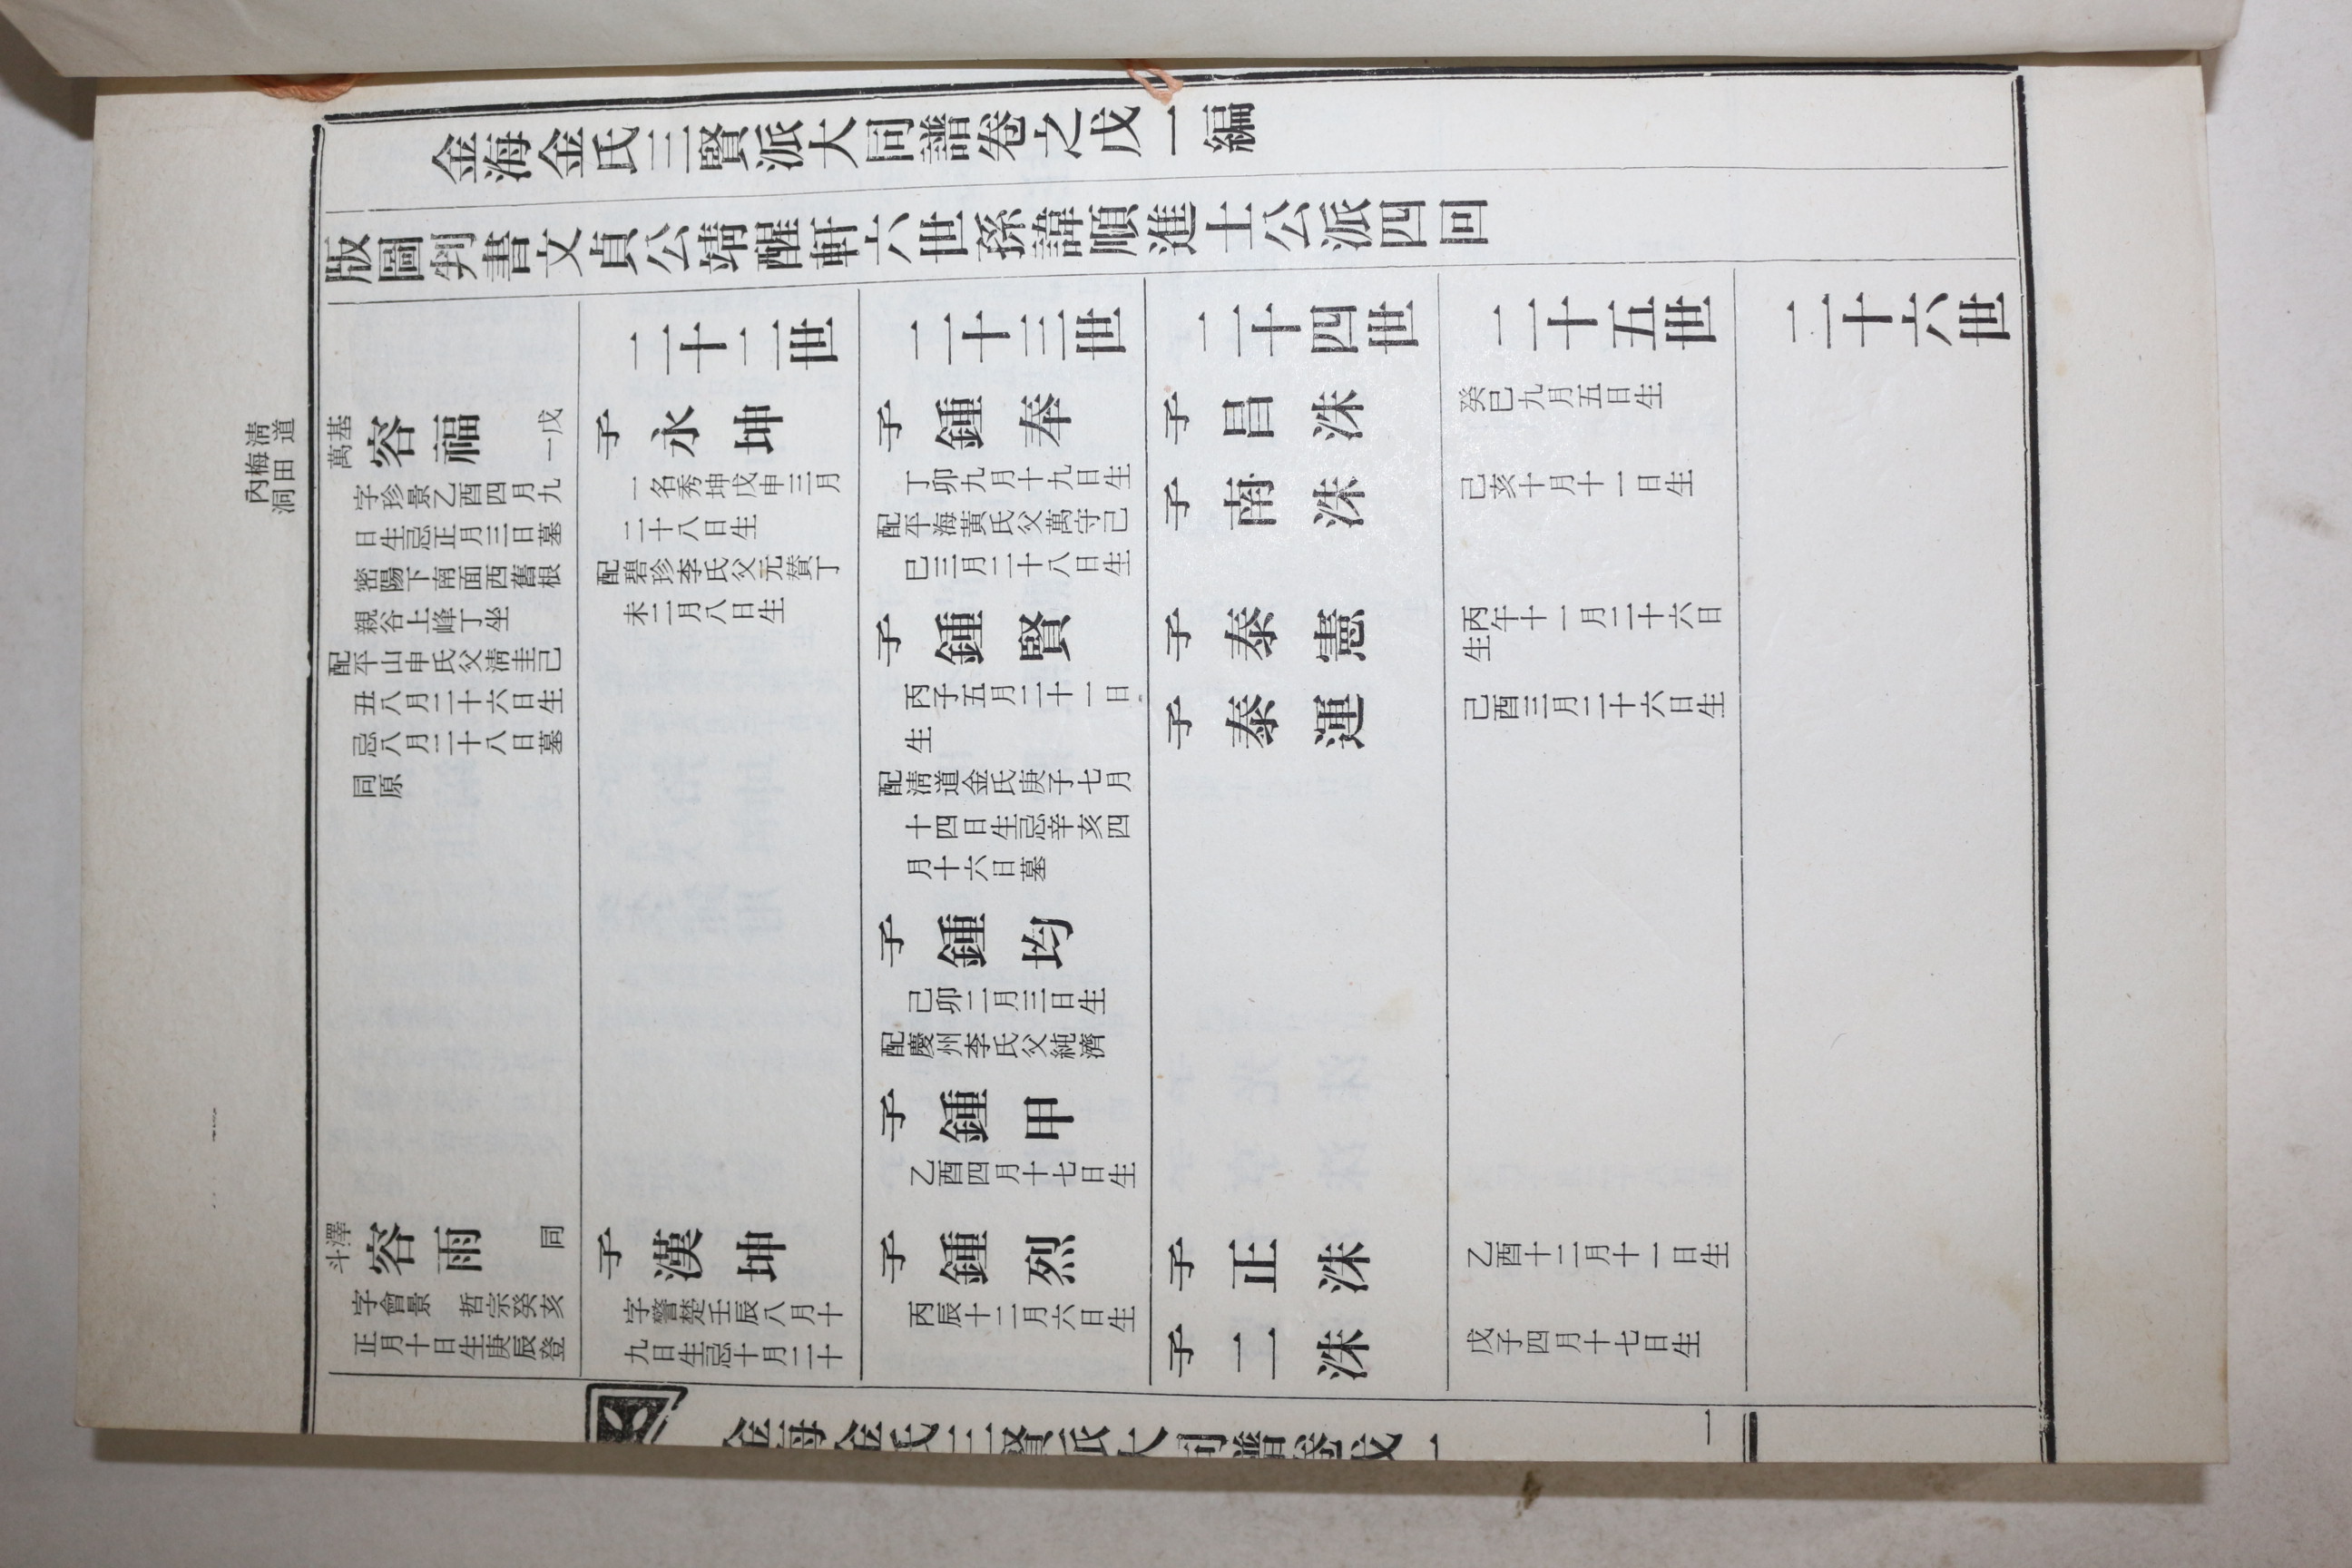 金海金氏三賢派大同譜卷之戊一編
版圖判書文貞公靖醒軒六世孫諱順進士公派四回
淸道
梅田
內洞
基
萬
容福
戊
一
字珍景乙酉四月九
日生忌正月三日墓
密陽下南面西舊根
親谷上峰丁坐
配平山申氏父淸圭己
丑八月二十六日生
忌八月二十八日墓
同原
澤
斗
容雨
同
字會景 哲宗癸亥
正月十日生庚辰登
二十二世
子永坤
一名秀坤戊申三月
二十八日生
配碧珍李氏父元贊丁
未二月八日生
子漢坤
字警楚壬辰八月十
九日生忌十月二十
二十三世
子鍾奉
丁卯九月十九日生
配平海黃氏父萬守己
巳三月二十八日生
子鍾賢
丙子五月二十一日
生
配淸道金氏庚子七月
十四日生忌辛亥四
月十六日墓
子鍾均
己卯二月三日生
配慶州李氏父純濟
子鍾甲
乙酉四月十七日生
子鍾烈
丙辰十二月六日生
二十四世
子昌洙
子南洙
子泰憲
子泰運
子正洙
子二洙
二十五世
癸巳九月五日生
己亥十月十一日生
丙午十一月二十六日
生
己酉三月二十六日生
乙酉十二月十一日生
戊子四月十七日生
二十六世
金海金氏三賢派大同譜卷戊一
一